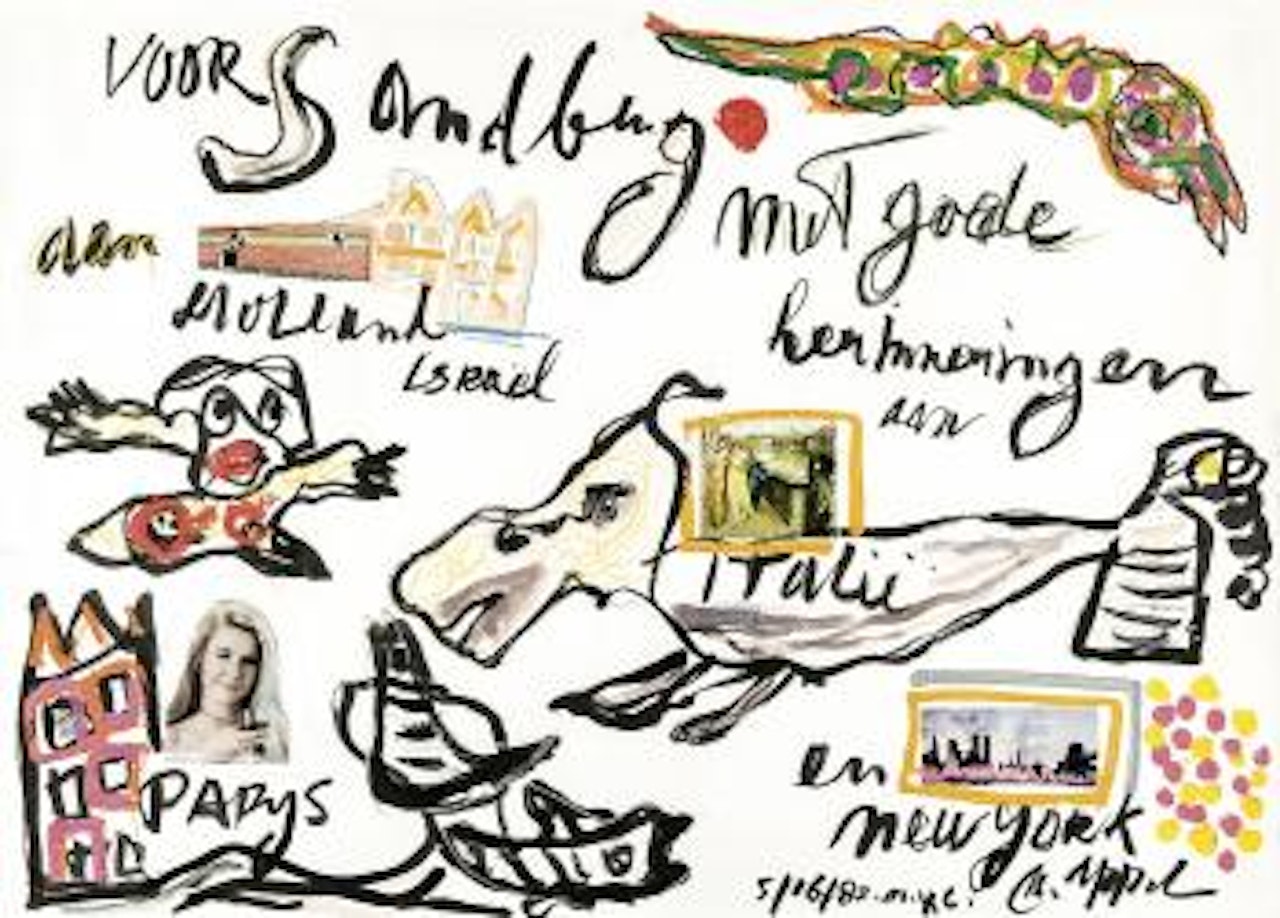 VOOR Sandberg
met goede
aan
Holland
herinneringen
Israël
aan
Italië
en
PARYS
new york
5/06/82.n.y.c. K. Appel